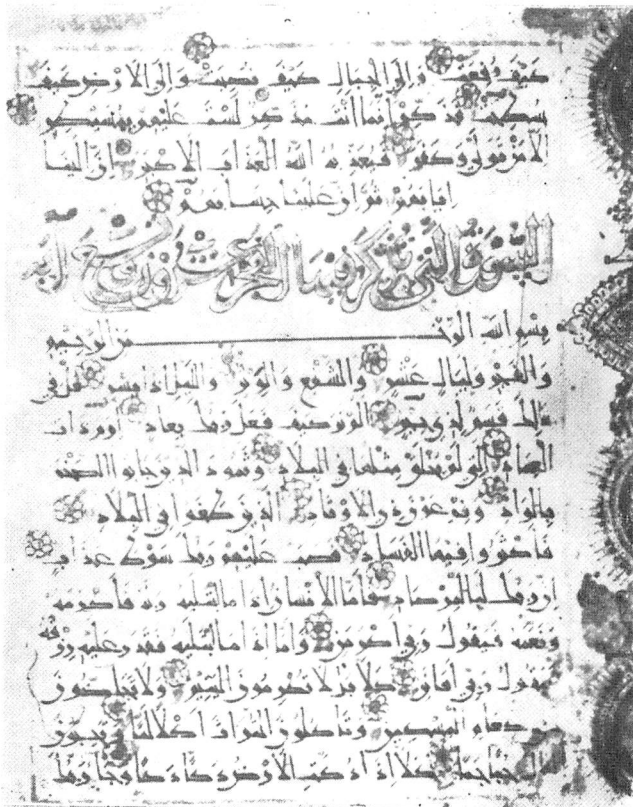 كيف رفعت وإلى الجبال كيف نصبت وإلى الأرض كيف
سطحت فذكر إنما أنت مذكر لست عليهم بمصيطر
إلا من تولى وكفر فيعذبه الله العذاب الأكبر إن إلينا
إيابهم ثم إن علينا حسابهم
السورة التي يذكر فيها الفجر آية
بسم الله الرحمن الرحيم
والفجر وليال عشر والشفع والوتر والليل إذا يسر هل في
ذلك قسم لذي حجر ألم تر كيف فعل ربك بعاد إرم ذات
العماد التي لم يخلق مثلها في البلاد وثمود الذين جابوا الصخر
بالواد وفرعون ذي الأوتاد الذين طغوا في البلاد
فأكثروا فيها الفساد فصب عليهم ربك سوط عذاب
إن ربك لبالمرصاد فأما الإنسان إذا ما ابتليه ربه فأكرمه
ونعمه فيقول ربي أكرمن وأما إذا ما ابتليه فقدر عليه رزقه
فيقول ربي أهانن كلا بل لا تكرمون اليتيم ولا تحضون
على طعام المسكين وتأكلون التراث أكلا لما وتحبون
المال حبا جما كلا إذا دكت الأرض دكا دكا وجاء ربك